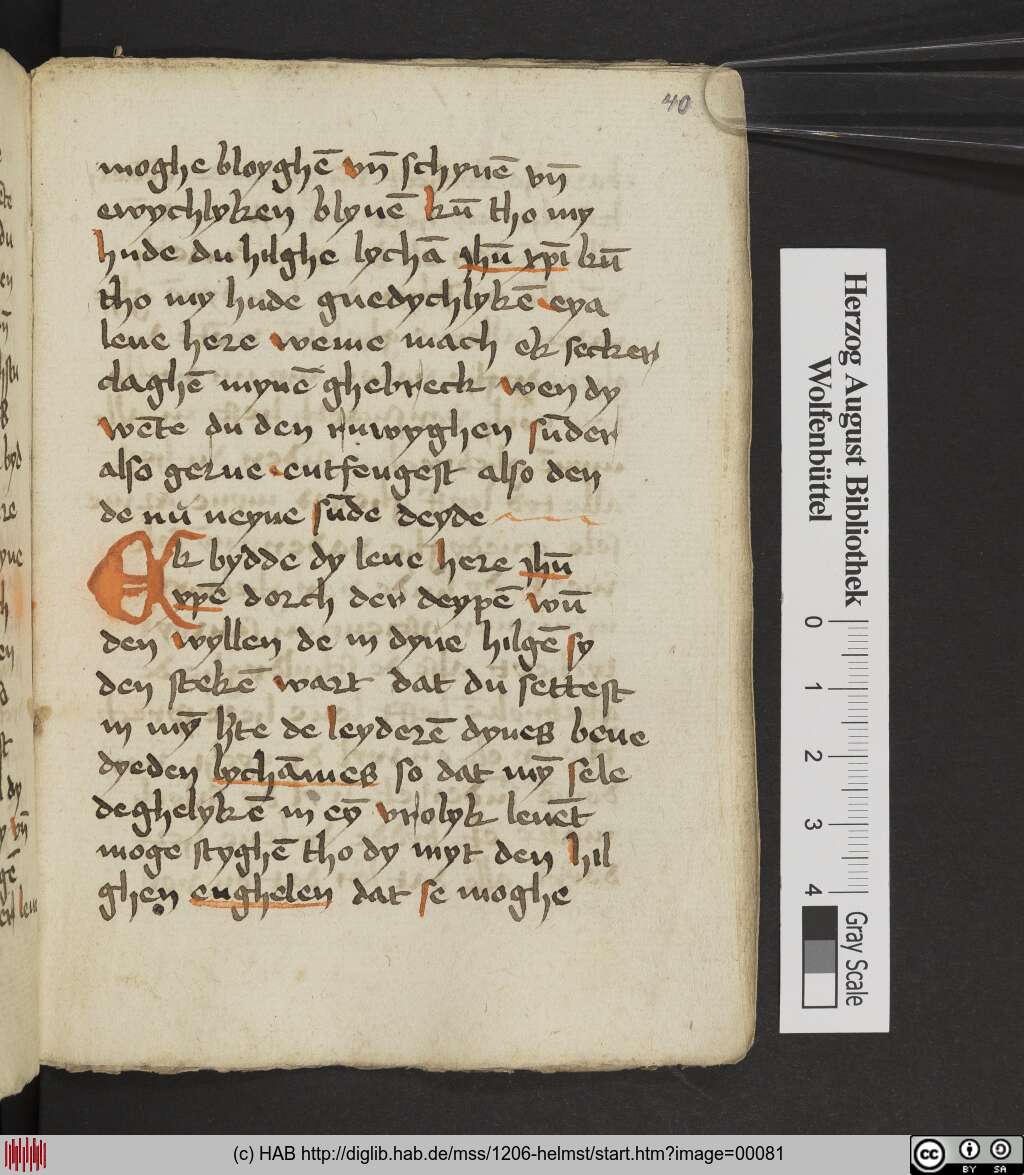 40
moghe bloyghē vn̄ schynē vn̄
ewychlyken blyuē kū tho my
hude du hilghe lychā ihū xp̄i kū
tho my hude gnedychlykē eya
leue here weme mach ek secker
claghē mynē ghebreck wen dy
wēte du den ruwyghen sūder
also gerne entfengest also den
de nu̇ neyne sūde deyde
Ek bydde dy leue here ihū
xp̄e dorch der deypē wū
den wyllen de in dyne hilgē sy
den stekē wart dat du settest
in my̅ h̕te de leyderē dynes bene
dyeden lychāmes so dat my̅ sele
deghelykē in ey̅ vrolyk leuēt
moge styghē tho dy myt den hil
ghen enghelen dat se moghe
Herzog August Bibliothek
Wolfenbüttel
0 1 2 3 4
Gray Scale
(c) HAB http://diglib.hab.de/mss/1206-helmst/start.htm?image=00081
cc BY SA